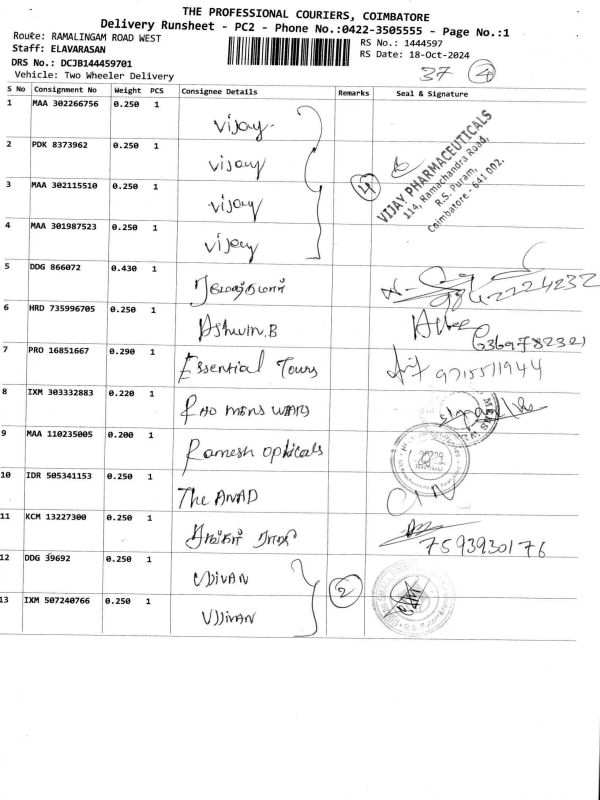 THE PROFESSIONAL COURIERS, COIMBATORE
Delivery Runsheet - PC2 - Phone No.:0422-3505555 - Page No.:1
Route: RAMALINGAM ROAD WEST
RS No.: 1444597
Staff: ELAVARASAN
RS Date: 18-Oct-2024
DRS No.: DCJB144459701
Vehicle: Two Wheeler Delivery
37 4
S No Consignment No Weight PCS Consignee Details Remarks Seal & Signature
1 MAA 302266756 0.250 1 vijay
2 PDK 8373962 0.250 1 vijay
3 MAA 302115510 0.250 1 vijay
4
VIJAY PHARMACEUTICALS
114, Ramachandra Road,
R.S. Puram,
Coimbatore - 641 002.
4 MAA 301987523 0.250 1 vijay
5 DDG 866072 0.430 1
6 HRD 735996705 0.250 1 Ashwin.B
7 PRO 16851667 0.290 1 Essential Tours 9715511944
8 IXM 303332883 0.220 1 RAO MENS WARS
9 MAA 110235005 0.200 1 Ramesh opticals
10 IDR 505341153 0.250 1 The ANAD
11 KCM 13227300 0.250 1 7593930176
12 DDG 39692 0.250 1 UJJIVAN 2
13 IXM 507240766 0.250 1 UJJIVAN